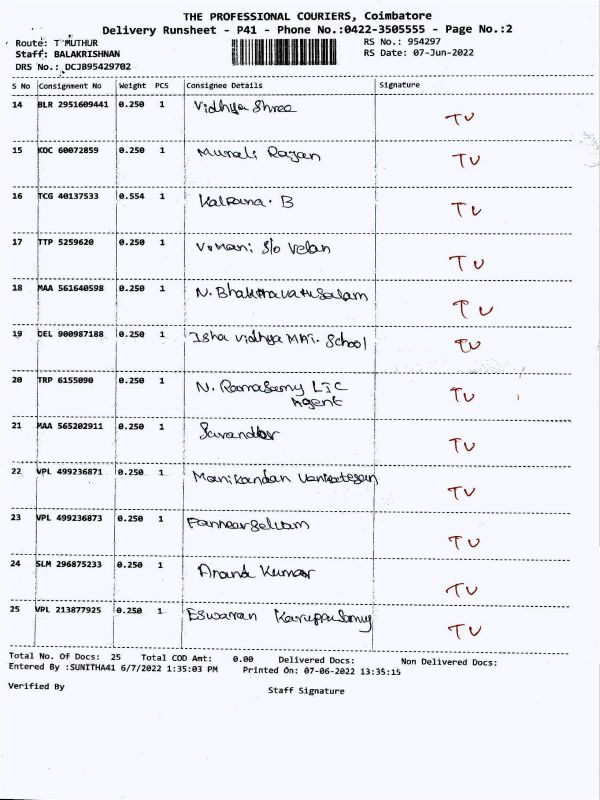 THE PROFESSIONAL COURIERS, Coimbatore
Delivery Runsheet - P41 - Phone No.:0422-3505555 - Page No.:2
Route: T MUTHUR RS No.: 954297
Staff: BALAKRISHNAN RS Date: 07-Jun-2022
DRS No.: DCJB95429702
S No Consignment No Weight PCS Consignee Details Signature
14 BLR 2951609441 0.250 1 Vidhya Shree TU
15 KOC 60072859 0.250 1 Murali Rajan TU
16 TCG 40137533 0.554 1 Kalpana. B TU
17 TTP 5259620 0.250 1 V.Mani S/o Velan TU
18 MAA 561640598 0.250 1 N. TU
19 DEL 900987188 0.250 1 Isha Vidhya Mat. School TU
20 TRP 6155090 0.250 1 N. Ramasamy LIC TU
Agent
21 MAA 565202911 0.250 1 TU
22 VPL 499236871 0.250 1 Manikandan TU
23 VPL 499236873 0.250 1 TU
24 SLM 296875233 0.250 1 Anand Kumar TU
25 VPL 213877925 0.250 1 Eswaran Karuppusamy TU
Total No. Of Docs: 25 Total COD Amt: 0.00 Delivered Docs: Non Delivered Docs:
Entered By :SUNITHA41 6/7/2022 1:35:03 PM Printed On: 07-06-2022 13:35:15
Verified By Staff Signature